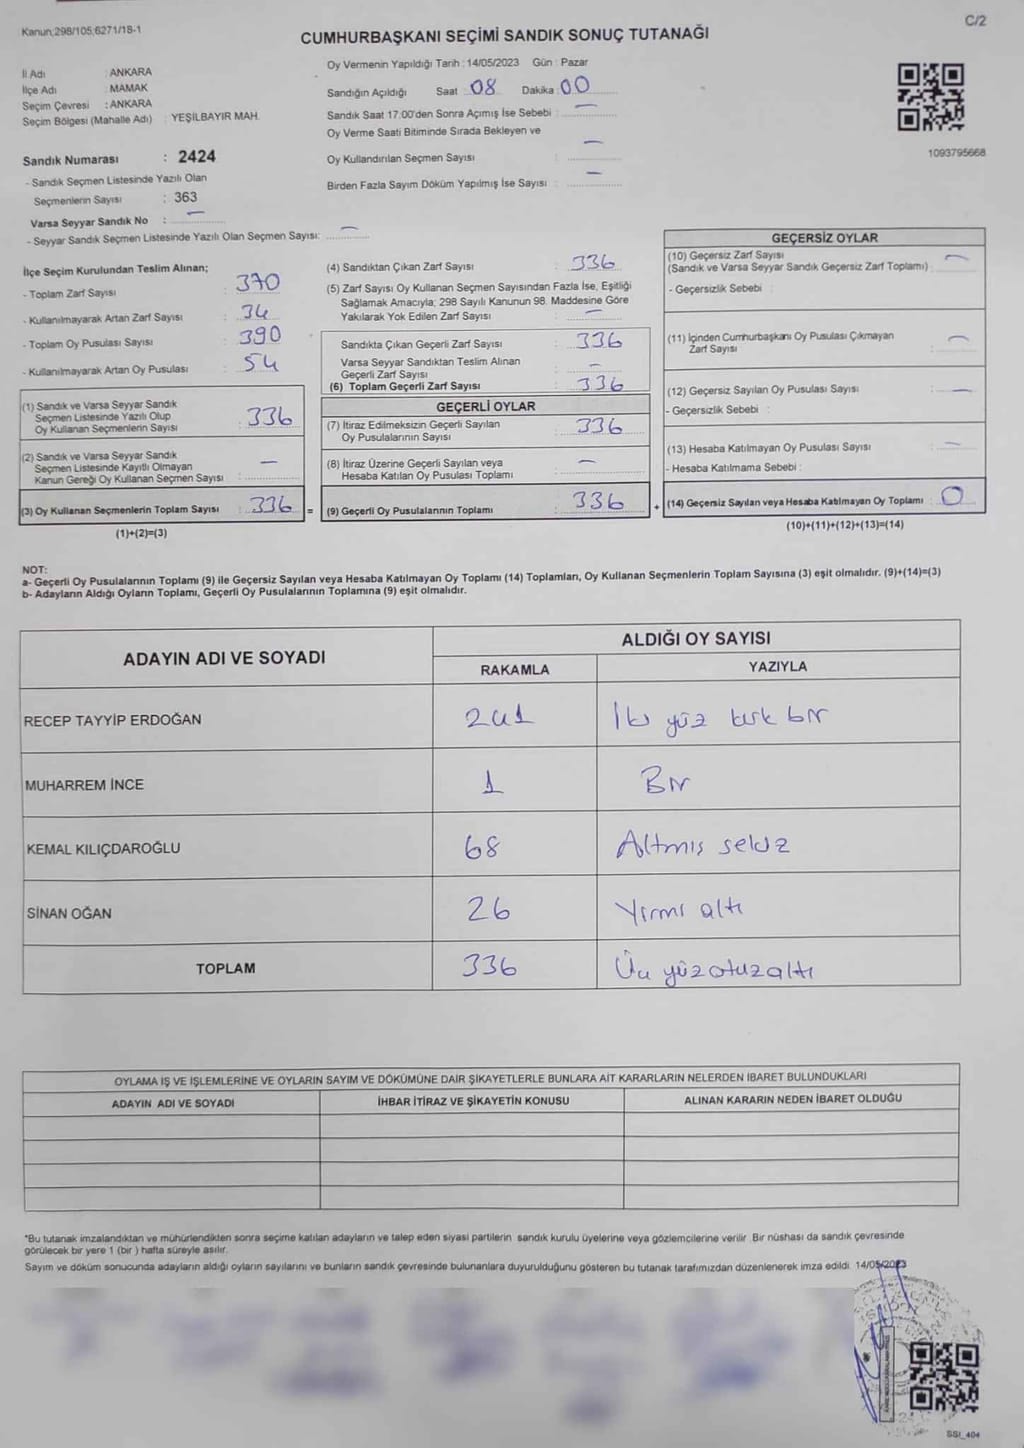 Kanun;298/105;6271/18-1
C/2
CUMHURBAŞKANI SEÇİMİ SANDIK SONUÇ TUTANAĞI
İl Adı : ANKARA
İlçe Adı : MAMAK
Seçim Çevresi : ANKARA
Seçim Bölgesi (Mahalle Adı) : YEŞİLBAYIR MAH.
Sandık Numarası : 2424
- Sandık Seçmen Listesinde Yazılı Olan
Seçmenlerin Sayısı : 363
Varsa Seyyar Sandık No : —
- Seyyar Sandık Seçmen Listesinde Yazılı Olan Seçmen Sayısı: —
Oy Vermenin Yapıldığı Tarih : 14/05/2023 Gün : Pazar
Sandığın Açıldığı Saat : 08 Dakika : 00
Sandık Saat 17:00'den Sonra Açımış İse Sebebi : —
Oy Verme Saati Bitiminde Sırada Bekleyen ve
Oy Kullandırılan Seçmen Sayısı : —
Birden Fazla Sayım Döküm Yapılmış İse Sayısı : —
1093795668
İlçe Seçim Kurulundan Teslim Alınan;
- Toplam Zarf Sayısı : 370
- Kullanılmayarak Artan Zarf Sayısı : 34
- Toplam Oy Pusulası Sayısı : 390
- Kullanılmayarak Artan Oy Pusulası : 54
(1) Sandık ve Varsa Seyyar Sandık
Seçmen Listesinde Yazılı Olup
Oy Kullanan Seçmenlerin Sayısı : 336
(2) Sandık ve Varsa Seyyar Sandık
Seçmen Listesinde Kayıtlı Olmayan
Kanun Gereği Oy Kullanan Seçmen Sayısı : —
(3) Oy Kullanan Seçmenlerin Toplam Sayısı : 336 =
(1)+(2)=(3)
(4) Sandıktan Çıkan Zarf Sayısı : 336
(5) Zarf Sayısı Oy Kullanan Seçmen Sayısından Fazla İse, Eşitliği
Sağlamak Amacıyla; 298 Sayılı Kanunun 98. Maddesine Göre
Yakılarak Yok Edilen Zarf Sayısı : —
Sandıkta Çıkan Geçerli Zarf Sayısı : 336
Varsa Seyyar Sandıktan Teslim Alınan
Geçerli Zarf Sayısı : —
(6) Toplam Geçerli Zarf Sayısı : 336
GEÇERLİ OYLAR
(7) İtiraz Edilmeksizin Geçerli Sayılan
Oy Pusulalarının Sayısı : 336
(8) İtiraz Üzerine Geçerli Sayılan veya
Hesaba Katılan Oy Pusulası Toplamı : —
(9) Geçerli Oy Pusulalarının Toplamı : 336 +
GEÇERSİZ OYLAR
(10) Geçersiz Zarf Sayısı
(Sandık ve Varsa Seyyar Sandık Geçersiz Zarf Toplamı) : —
- Geçersizlik Sebebi :
(11) İçinden Cumhurbaşkanı Oy Pusulası Çıkmayan
Zarf Sayısı : —
(12) Geçersiz Sayılan Oy Pusulası Sayısı : —
- Geçersizlik Sebebi :
(13) Hesaba Katılmayan Oy Pusulası Sayısı : —
- Hesaba Katılmama Sebebi :
(14) Geçersiz Sayılan veya Hesaba Katılmayan Oy Toplamı : 0
(10)+(11)+(12)+(13)=(14)
NOT:
a- Geçerli Oy Pusulalarının Toplamı (9) ile Geçersiz Sayılan veya Hesaba Katılmayan Oy Toplamı (14) Toplamları, Oy Kullanan Seçmenlerin Toplam Sayısına (3) eşit olmalıdır. (9)+(14)=(3)
b- Adayların Aldığı Oyların Toplamı, Geçerli Oy Pusulalarının Toplamına (9) eşit olmalıdır.
ADAYIN ADI VE SOYADI
ALDIĞI OY SAYISI
RAKAMLA YAZIYLA
RECEP TAYYİP ERDOĞAN 241 İki yüz kırk bir
MUHARREM İNCE 1 Bir
KEMAL KILIÇDAROĞLU 68 Altmış sekiz
SİNAN OĞAN 26 Yirmi altı
TOPLAM 336 Üç yüzotuzaltı
OYLAMA İŞ VE İŞLEMLERİNE VE OYLARIN SAYIM VE DÖKÜMÜNE DAİR ŞİKAYETLERLE BUNLARA AİT KARARLARIN NELERDEN İBARET BULUNDUKLARI
ADAYIN ADI VE SOYADI İHBAR İTİRAZ VE ŞİKAYETİN KONUSU ALINAN KARARIN NEDEN İBARET OLDUĞU
*Bu tutanak imzalandıktan ve mühürlendikten sonra seçime katılan adayların ve talep eden siyasi partilerin sandık kurulu üyelerine veya gözlemcilerine verilir. Bir nüshası da sandık çevresinde
görülecek bir yere 1 (bir ) hafta süreyle asılır.
Sayım ve döküm sonucunda adayların aldığı oyların sayılarını ve bunların sandık çevresinde bulunanlara duyurulduğunu gösteren bu tutanak tarafımızdan düzenlenerek imza edildi. 14/05/2023
SSI_404